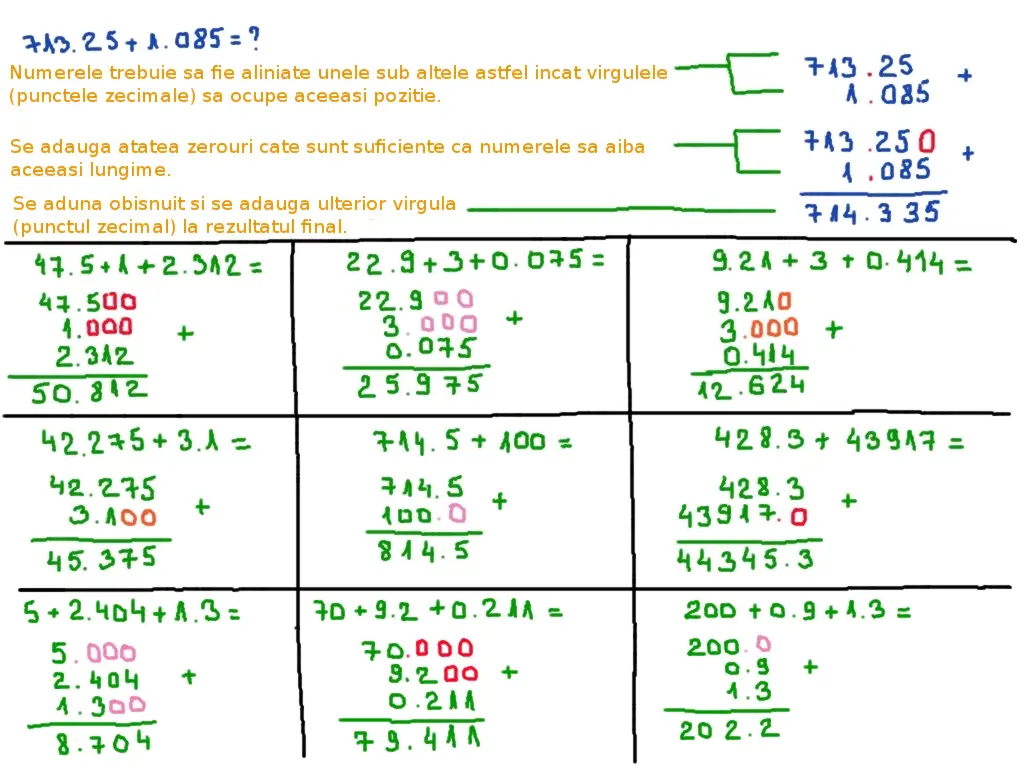 713.25 + 1.085 = ?
Numerele trebuie sa fie aliniate unele sub altele astfel incat virgulele
(punctele zecimale) sa ocupe aceeasi pozitie.
713.25 +
1.085
Se adauga atatea zerouri cate sunt suficiente ca numerele sa aiba
aceeasi lungime.
713.250 +
1.085
Se aduna obisnuit si se adauga ulterior virgula
(punctul zecimal) la rezultatul final.
714.335
47.5+1+2.312=
47.500
1.000 +
2.312
50.812
22.9+3+0.075=
22.900
3.000 +
0.075
25.975
9.21+3+0.414=
9.210
3.000 +
0.414
12.624
42.275+3.1=
42.275 +
3.100
45.375
714.5+100=
714.5 +
100.0
814.5
428.3+43917=
428.3 +
43917.0
44345.3
5+2.404+1.3=
5.000
2.404 +
1.300
8.704
70+9.2+0.211=
70.000
9.200 +
0.211
79.411
200+0.9+1.3=
200.0
0.9 +
1.3
202.2